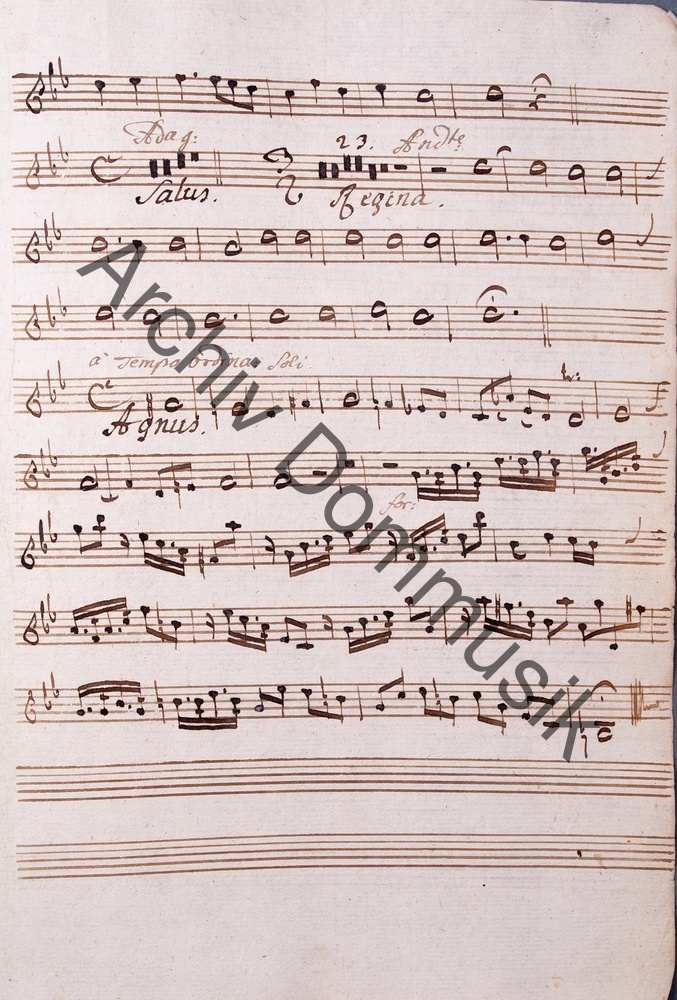 Adag:
Salus.
23. Andte
Regina.
à Tempo Ordina: Soli
Agnus.
for:
Archiv Dommusik